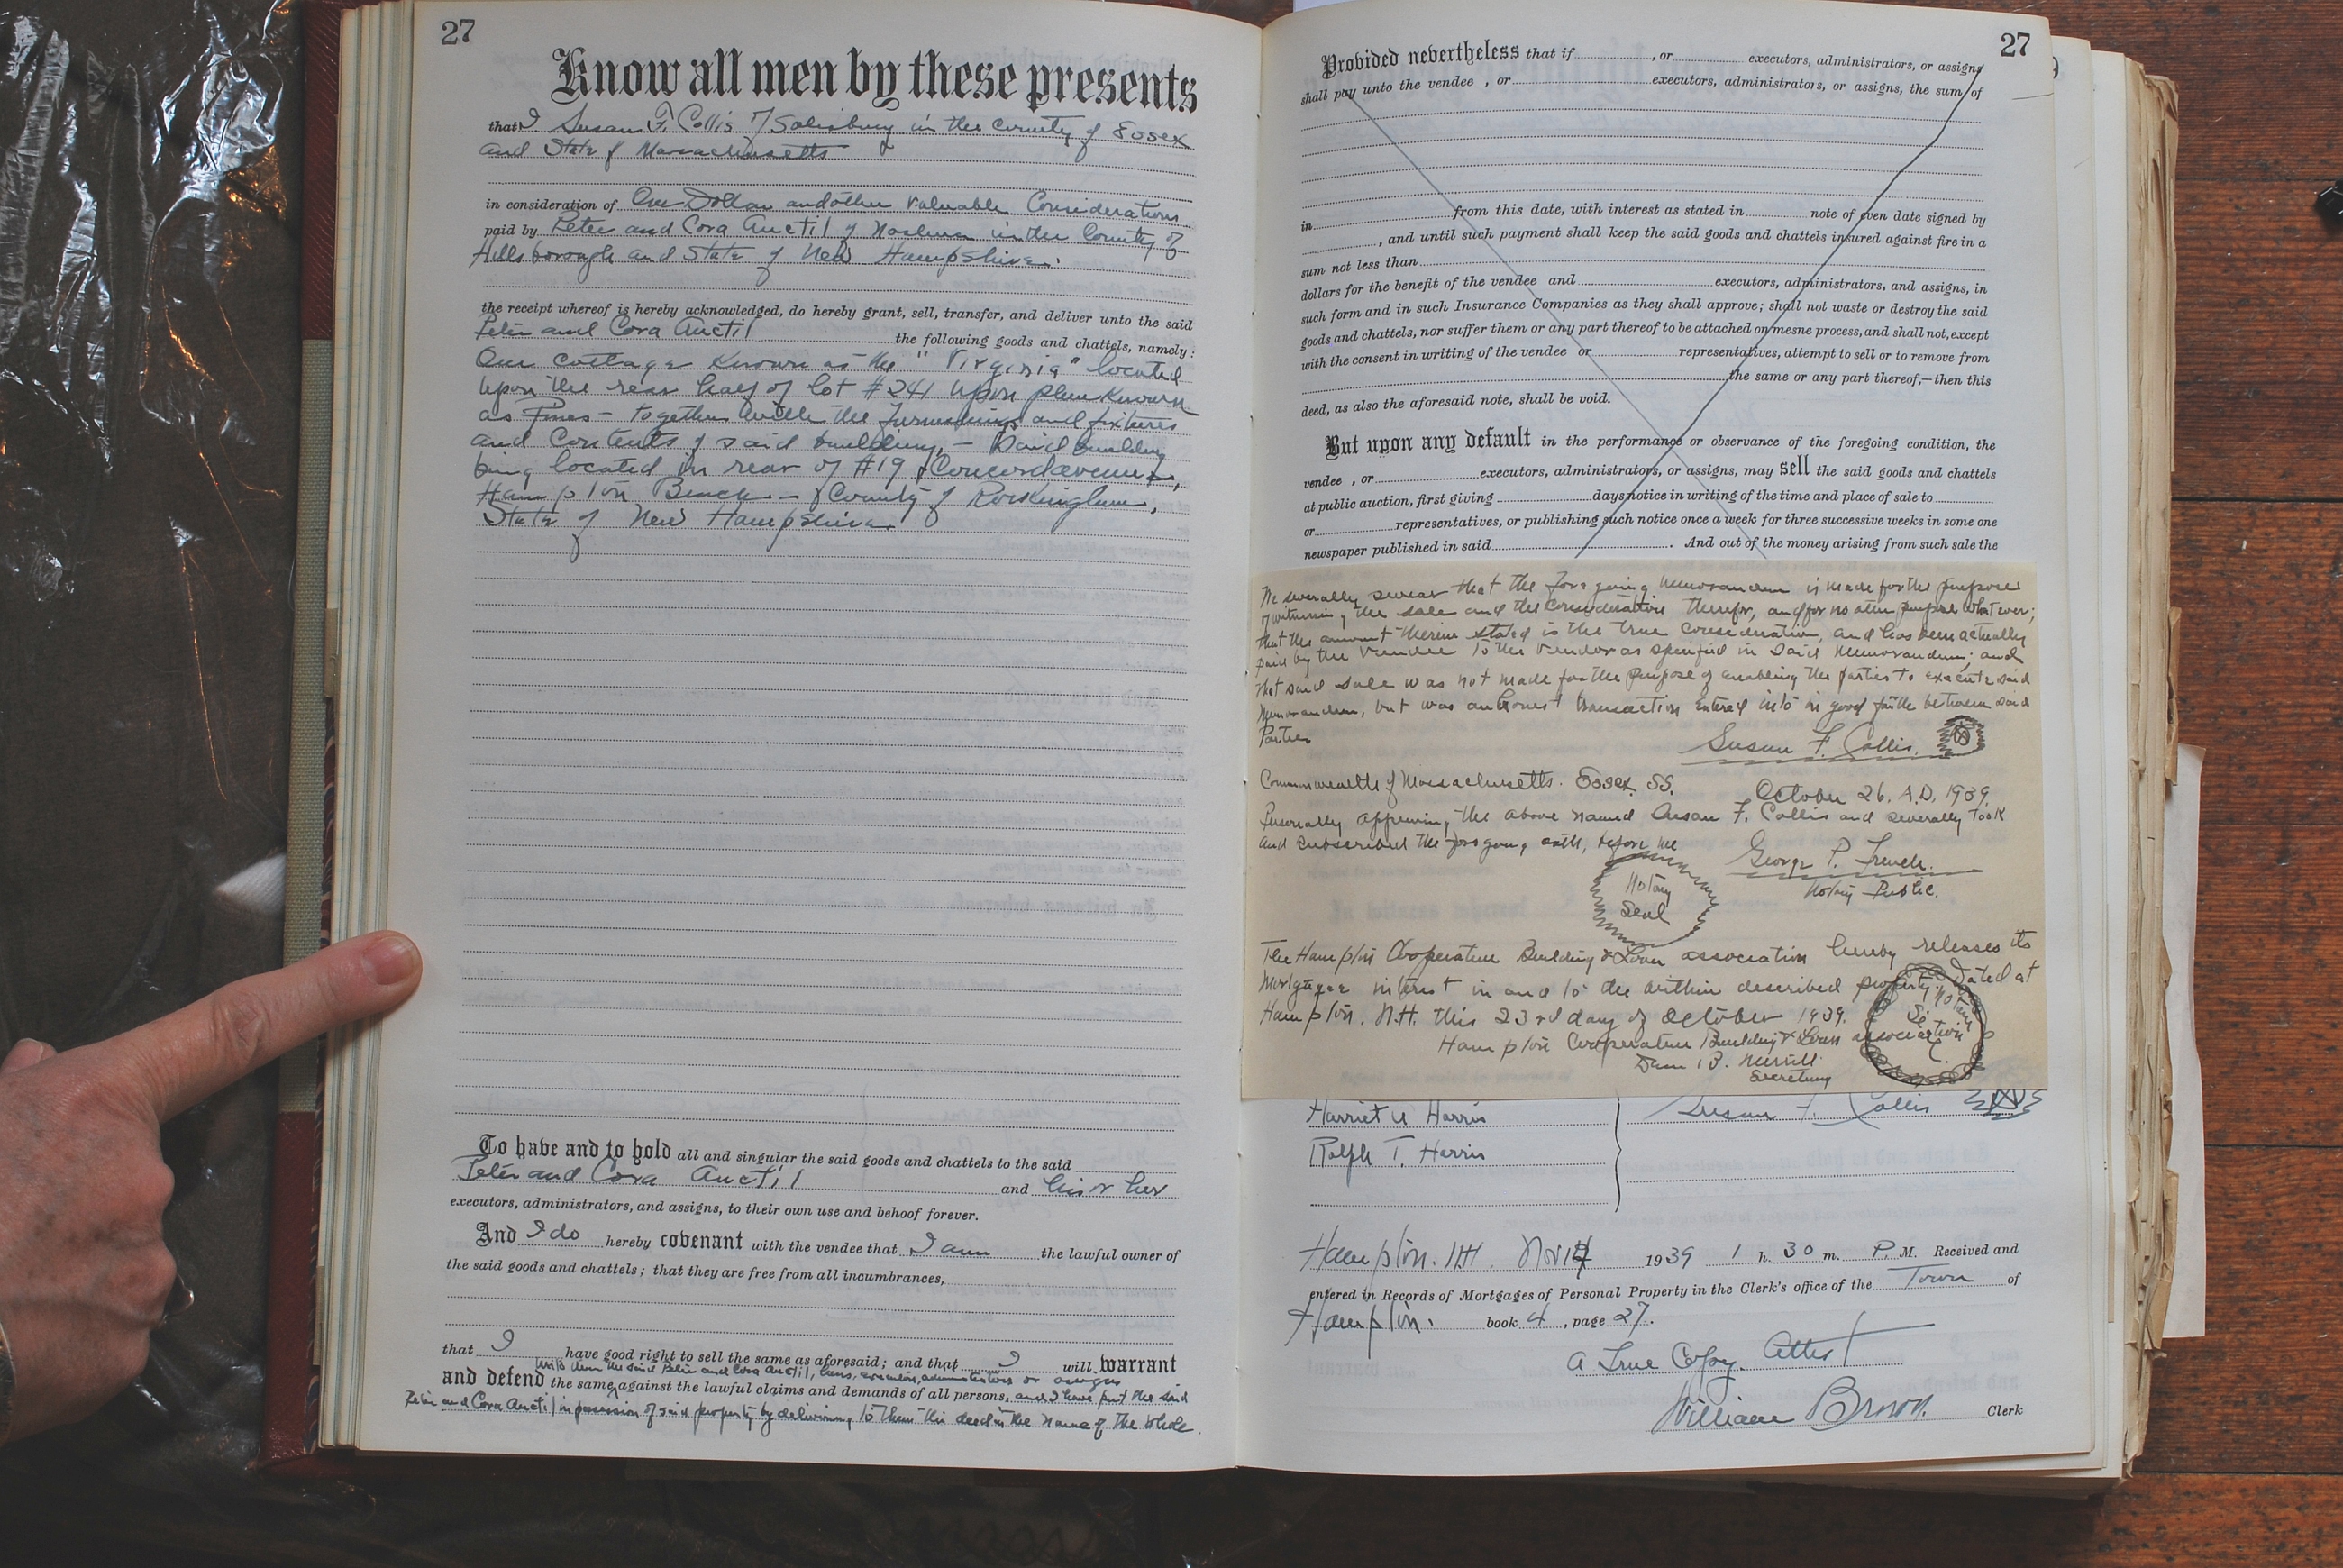 27
Know all men by these presents
that I Susan F. Collis of Salisbury in the County of Essex
and State of Massachusetts
in consideration of One Dollar and other Valuable Considerations
paid by Peter and Cora Auctil of Nashua in the County of
Hillsborough and State of New Hampshire.
the receipt whereof is hereby acknowledged, do hereby grant, sell, transfer, and deliver unto the said
Peter and Cora Auctil the following goods and chattels, namely:
One cottage Known as the "Virginia" located
upon the rear half of lot #241 upon plan Known
as Pines - together with the furnishings and fixtures
and Contents of said building, - Said building
being located in rear of #19 Concord avenue,
Hampton Beach - County of Rockingham,
State of New Hampshire
To have and to hold all and singular the said goods and chattels to the said
Peter and Cora Auctil and his or her
executors, administrators, and assigns, to their own use and behoof forever.
And I do hereby covenant with the vendee that I am the lawful owner of
the said goods and chattels; that they are free from all incumbrances,
that I have good right to sell the same as aforesaid; and that I will warrant
unto them the said Peter and Cora Auctil, heirs, executors, administrators or assigns
and defend the same against the lawful claims and demands of all persons, and I have put the said
Peter and Cora Auctil in possession of said property by delivering to them this deed in the name of the whole.
27
Provided nevertheless that if , or executors, administrators, or assigns
shall pay unto the vendee , or executors, administrators, or assigns, the sum of
in from this date, with interest as stated in note of even date signed by
, and until such payment shall keep the said goods and chattels insured against fire in a
sum not less than
dollars for the benefit of the vendee and executors, administrators, and assigns, in
such form and in such Insurance Companies as they shall approve; shall not waste or destroy the said
goods and chattels, nor suffer them or any part thereof to be attached on mesne process, and shall not, except
with the consent in writing of the vendee or representatives, attempt to sell or to remove from
the same or any part thereof,—then this
deed, as also the aforesaid note, shall be void.
But upon any default in the performance or observance of the foregoing condition, the
vendee , or executors, administrators, or assigns, may sell the said goods and chattels
at public auction, first giving days notice in writing of the time and place of sale to
or representatives, or publishing such notice once a week for three successive weeks in some one
newspaper published in said . And out of the money arising from such sale the
We severally swear that the foregoing memorandum is made for the purpose
of witnessing the sale and the Consideration therefor, and for no other purpose whatever;
that the amount therein stated is the true consideration, and has been actually
paid by the Vendee to the Vendor as specified in said memorandum; and
that said sale was not made for the purpose of enabling the parties to execute said
memorandum, but was an honest transaction entered into in good faith between said
Parties
Susan F. Collis.
Commonwealth of Massachusetts. Essex. SS. October 26. A.D. 1939.
Personally appearing the above named Susan F. Collis and severally took
and subscribed the foregoing oath, before me
George P. French.
Notary Public.
Notary
Seal
The Hampton Cooperative Building & Loan association hereby releases its
Mortgagee interest in and to the within described property. Dated at
Hampton. N.H. this 23rd day of October 1939.
Hampton Cooperative Building & Loan association
Dean B. Merrill
Secretary
Harriet A Harris
Susan F. Collis
Ralph T. Harris
Hampton. NH. Nov 1939 1 h. 30 m. P. M. Received and
entered in Records of Mortgages of Personal Property in the Clerk's office of the Town of
Hampton. book 4, page 27.
A True Copy. Attest
William Brown. Clerk